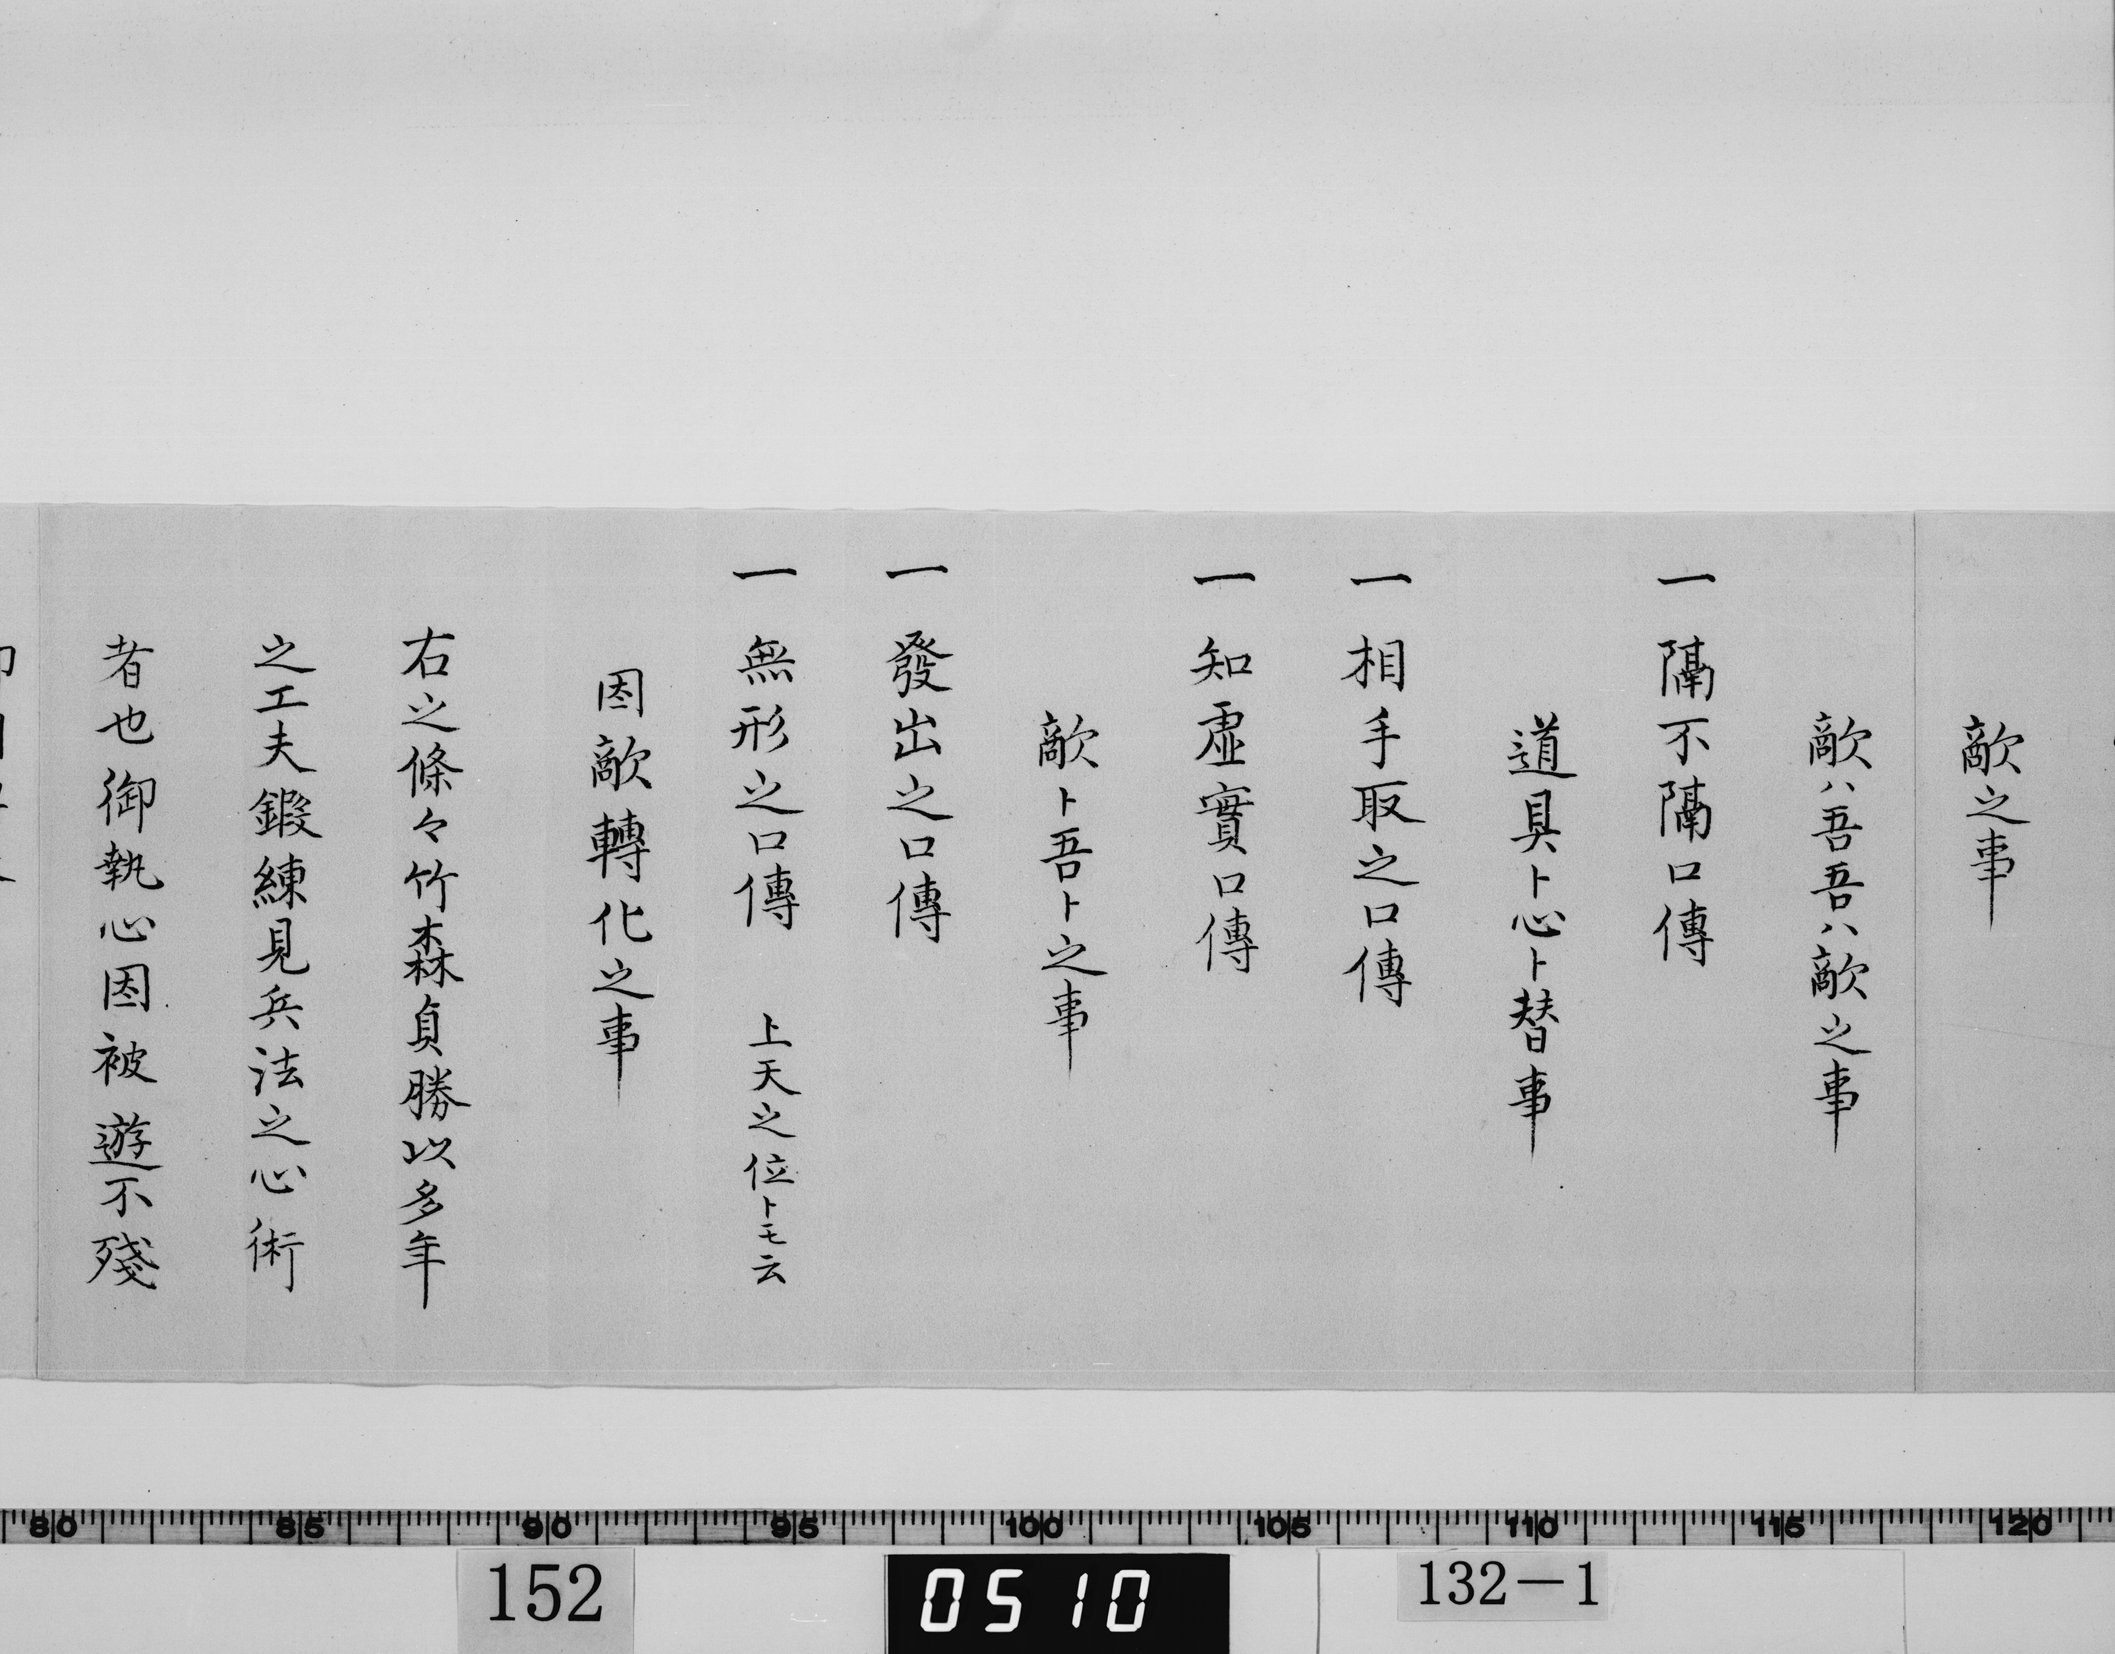 敵之事
敵ハ吾吾ハ敵之事
一 隔不隔口傳
道具ト心ト替事
一 相手取之口傳
一 知虚實口傳
敵ト吾ト之事
一 發出之口傳
一 無形之口傳 上天之位トモ云
因敵轉化之事
右之條々竹森貞勝以多年
之工夫鍛練見兵法之心術
者也御執心因被遊不殘
80 85 90 95 100 105 110 115 120
152
0510
132-1